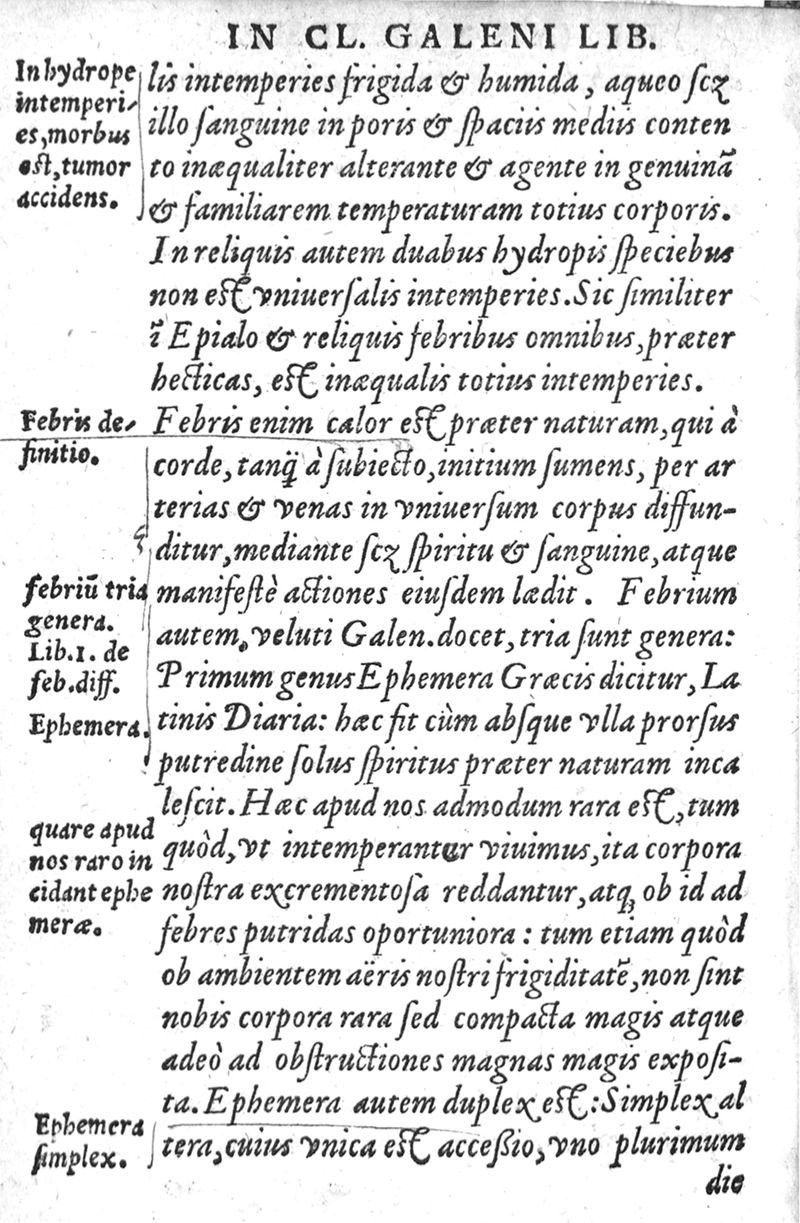 IN CL. GALENI LIB.
In hydrope
intemperi-
es, morbus
est, tumor
accidens.
lis intemperies frigida & humida, aqueo scꝫ
illo sanguine in poris & spaciis mediis conten
to inæqualiter alterante & agente in genuinã
& familiarem temperaturam totius corporis.
In reliquis autem duabus hydropis speciebus
non est vniuersalis intemperies. Sic similiter
ĩ Epialo & reliquis febribus omnibus, præter
hecticas, est inæqualis totius intemperies.
Febris de-
finitio.
Febris enim calor est præter naturam, qui à
corde, tanq̃ à subiecto, initium sumens, per ar
terias & venas in vniuersum corpus diffun-
ditur, mediante scꝫ spiritu & sanguine, atque
febriũ tria
genera.
Lib. 1. de
feb. diff.
Ephemera.
manifestè actiones eiusdem lædit. Febrium
autem, veluti Galen. docet, tria sunt genera:
Primum genus Ephemera Græcis dicitur, La
tinis Diaria: hæc fit cùm absque vlla prorsus
putredine solus spiritus præter naturam inca
lescit. Hæc apud nos admodum rara est, tum
quare apud
nos raro in
cidant ephe
meræ.
quòd, vt intemperanter viuimus, ita corpora
nostra excrementosa reddantur, atqꝫ ob id ad
febres putridas oportuniora: tum etiam quòd
ob ambientem aëris nostri frigiditatẽ, non sint
nobis corpora rara sed compacta magis atque
adeò ad obstructiones magnas magis exposi-
ta. Ephemera autem duplex est: Simplex al
Ephemera
simplex.
tera, cuius vnica est accessio, vno plurimum
die